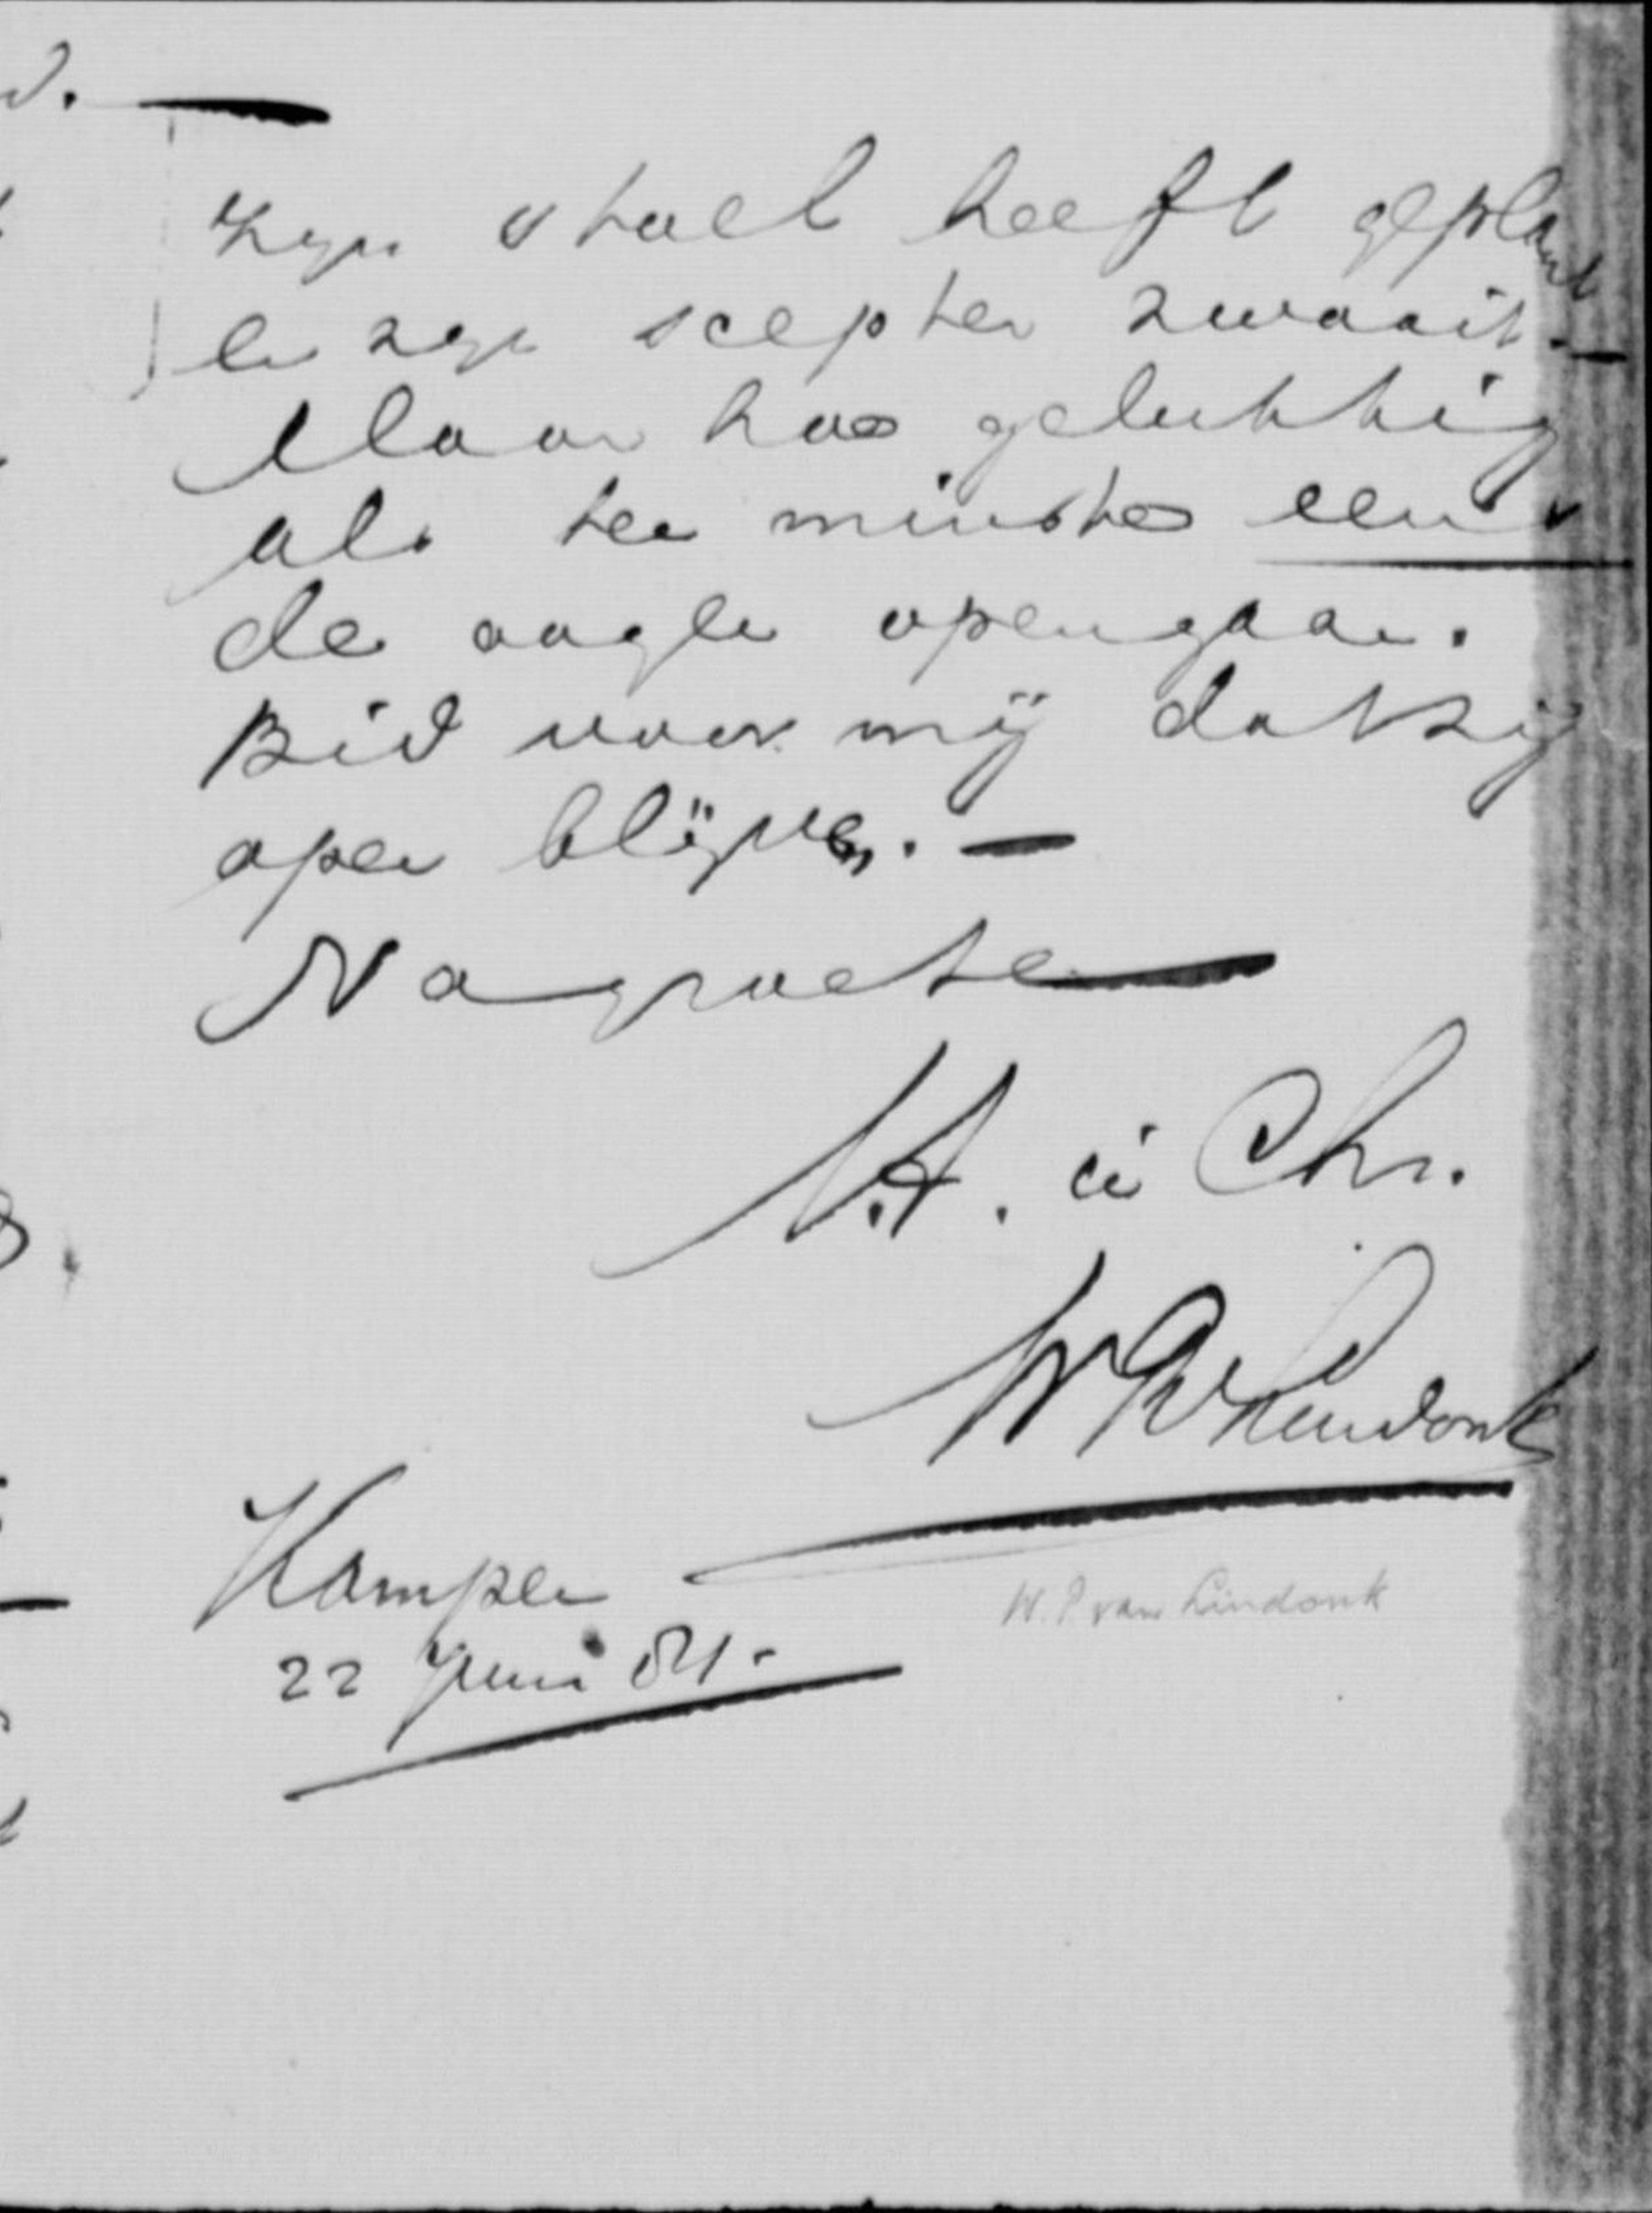 Zijn stoel heeft geplant
en zijn scepter zwaait. —
Maar hoe gelukkig
als ten minste eens
de oogen opengaan.
Bid voor mij dat zij
open blijven. —
Na groeten
t. à Chr.
W P v Lindonk
Kampen
22 Juni 84.
W. P. van Lindonk